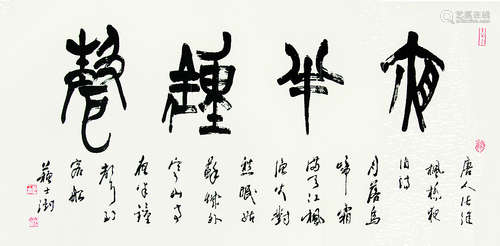 夜半鐘聲
唐人張繼
楓橋夜
泊詩
月落烏
啼霜
滿天江楓
漁火對
愁眠姑
蘇城外
寒山寺
夜半鐘
聲到
客船
蘇士澍
艺狐在线